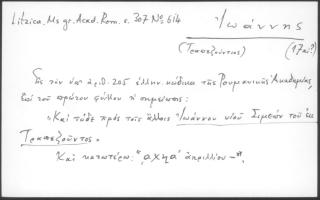 Litzica, Ms gr. Acad. Rom. c. 307 Nº 614
Ἰωάννης
(Τραπεζούντιος) (17 αἰ?)
Εἰς τὸν ὑπ' ἀρ. 205 ἑλλην. κώδικα τῆς Ρουμανικῆς Ἀκαδημίας,
ἐπὶ τοῦ πρώτου φύλλου ἡ σημείωσις:
"Καὶ τόδε πρὸς τοῖς ἄλλοις Ἰωάννου υἱοῦ Σιμεὼν τοῦ ἐκ
Τραπεζοῦντος.
Καὶ κατωτέρω: "αχπα ἀπριλλίου –".